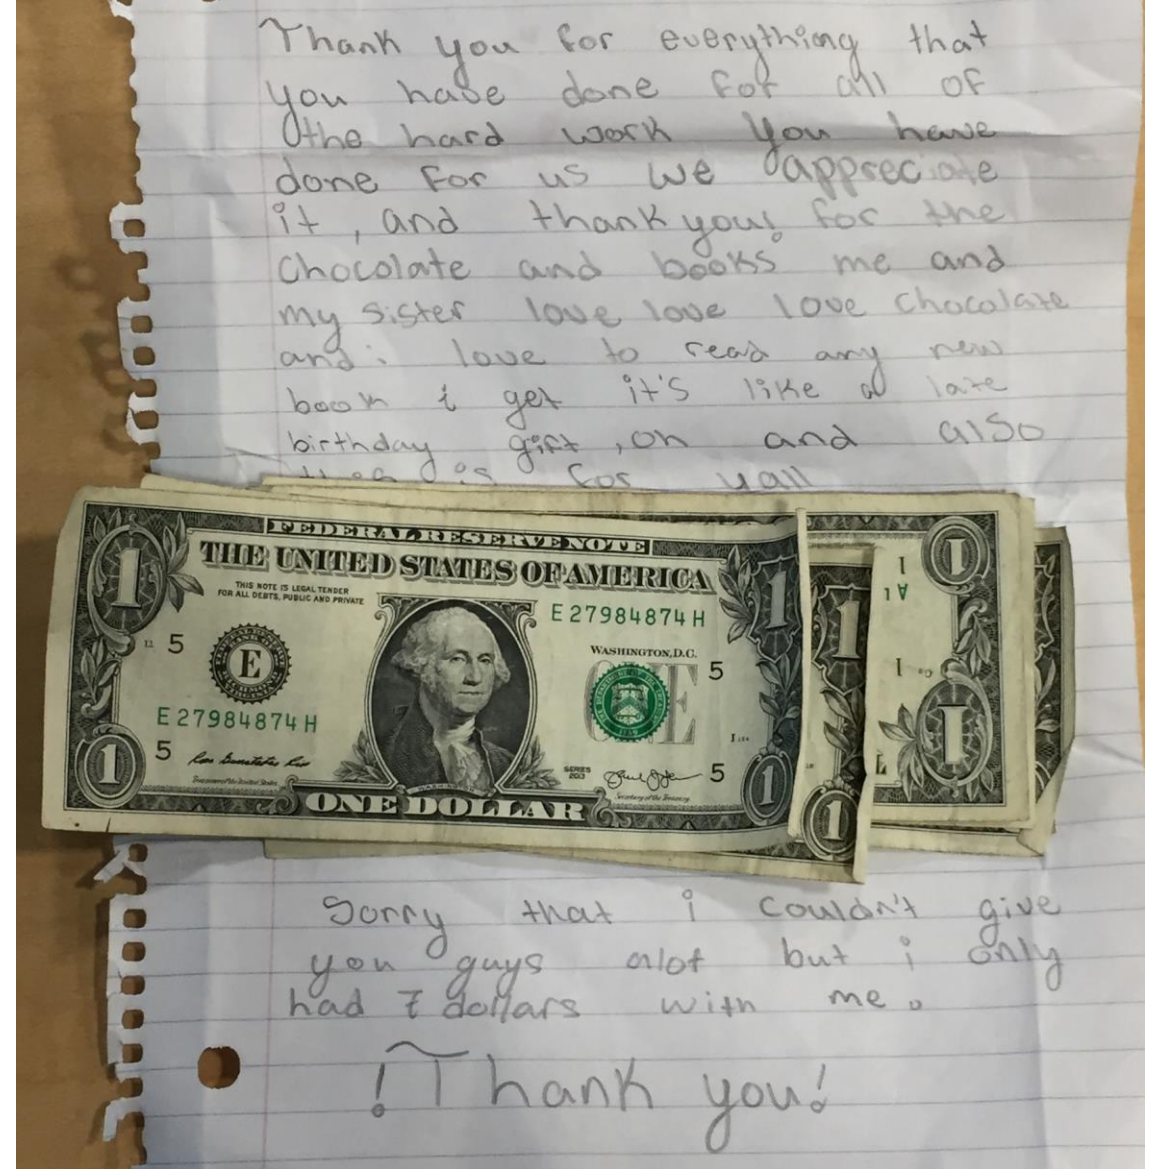 Thank you for everything that
you have done for all of
the hard work you have
done for us we appreciate
it, and thank you! for the
chocolate and books me and
my sister love love love chocolate
and i love to read any new
book i get it's like a late
birthday gift, oh and also
for yall
FEDERAL RESERVE NOTE
THE UNITED STATES OF AMERICA
THIS NOTE IS LEGAL TENDER
FOR ALL DEBTS, PUBLIC AND PRIVATE
E 27984874 H
WASHINGTON, D.C.
5
E
5
ONE
E 27984874 H
5
SERIES
2013
5
Secretary of the Treasury
ONE DOLLAR
1
1
1
1
1
1
1
1
Sorry that i couldn't give
you guys alot but i only
had 7 dollars with me.
!Thank you!